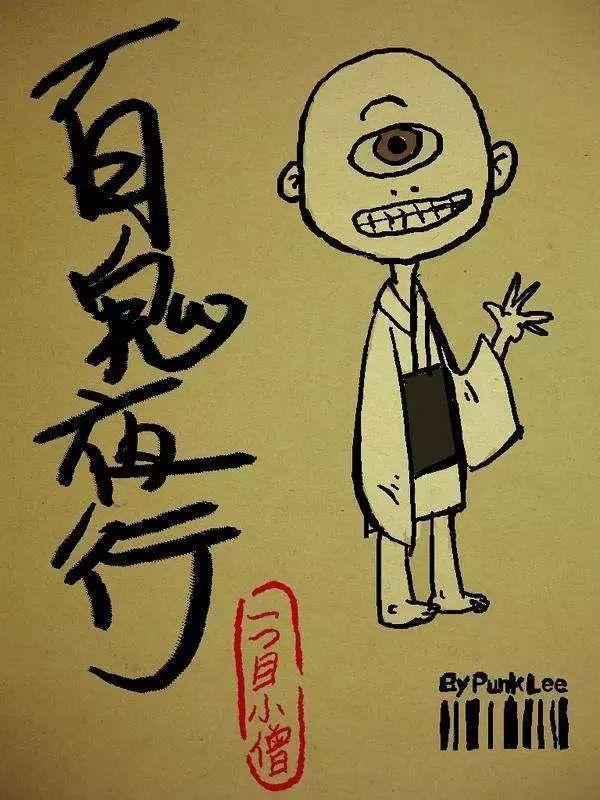 百鬼夜行
一つ目小僧
By Punk Lee